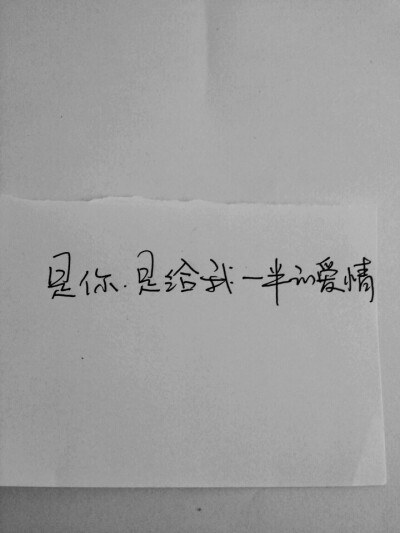 是你.是给我一半的爱情